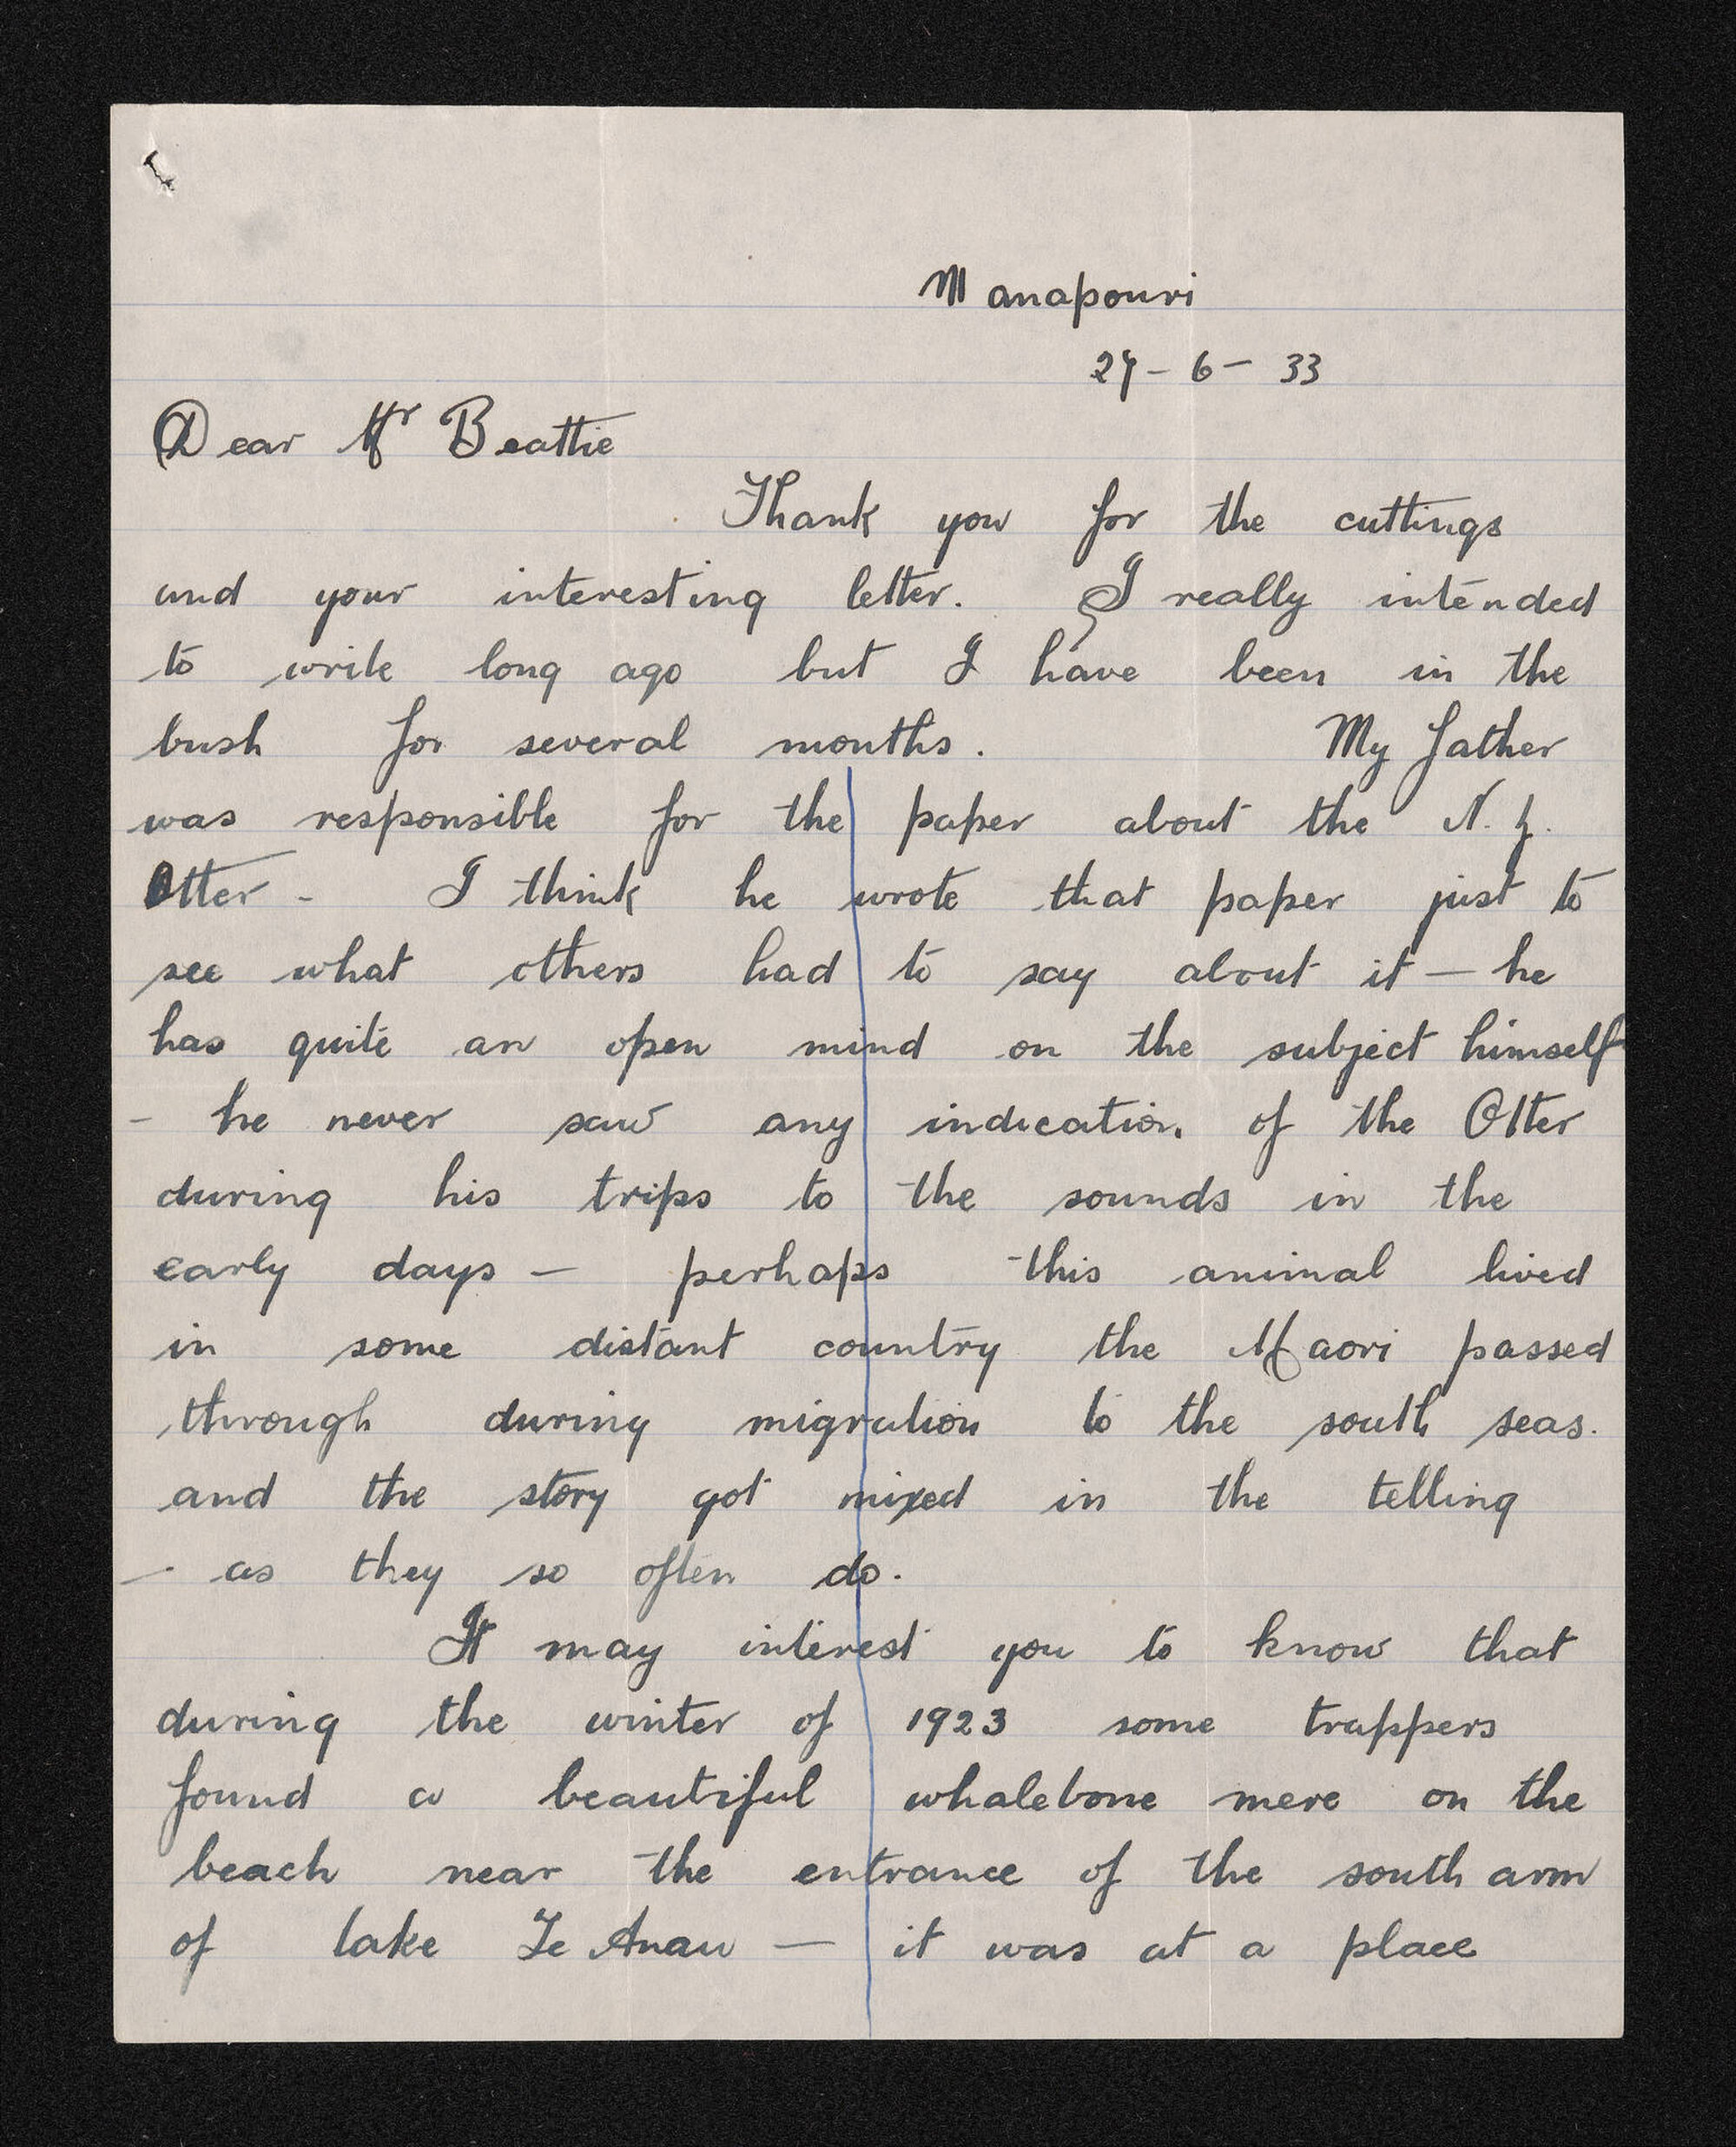 Manapouri
27 - 6 - 33
Dear Mr Beattie
Thank you for the cuttings
and your interesting letter. I really intended
to write long ago but I have been in the
bush for several months. My father
was responsible for the paper about the N. Z.
Otter - I think he wrote that paper just to
see what others had to say about it — he
has quite an open mind on the subject himself
- he never saw any indication of the Otter
during his trips to the sounds in the
early days — perhaps this animal lived
in some distant country the Maori passed
through during migration to the south seas.
and the story got mixed in the telling
— as they so often do.
It may interest you to know that
during the winter of 1923 some trappers
found a beautiful whalebone mere on the
beach near the entrance of the south arm
of lake Te Anau — it was at a place